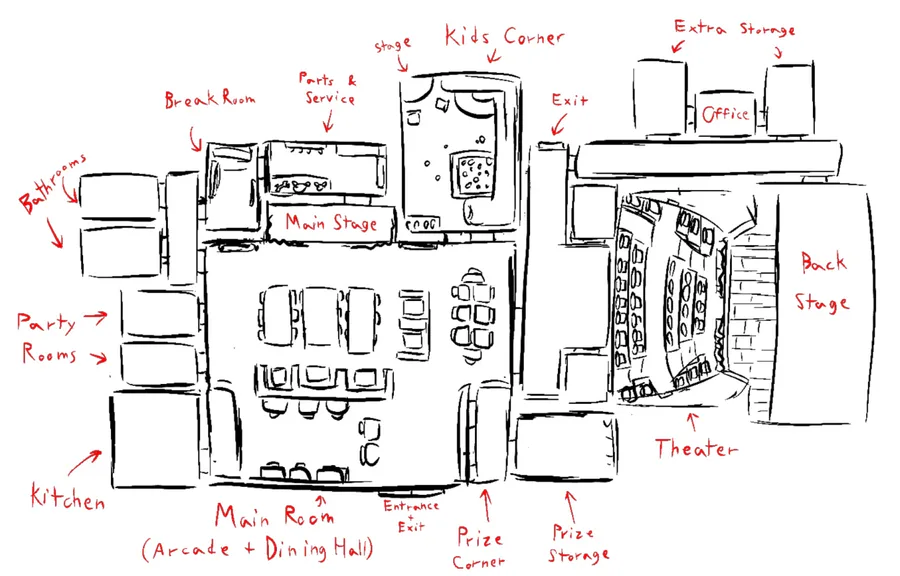 Extra Storage
Kids Corner
Stage
Parts &
Service
Break Room
Exit
Office
Bathrooms
Main Stage
Back
Stage
Party
Rooms
Theater
Kitchen
Main Room
(Arcade + Dining Hall)
Entrance
+
Exit
Prize
Corner
Prize
Storage